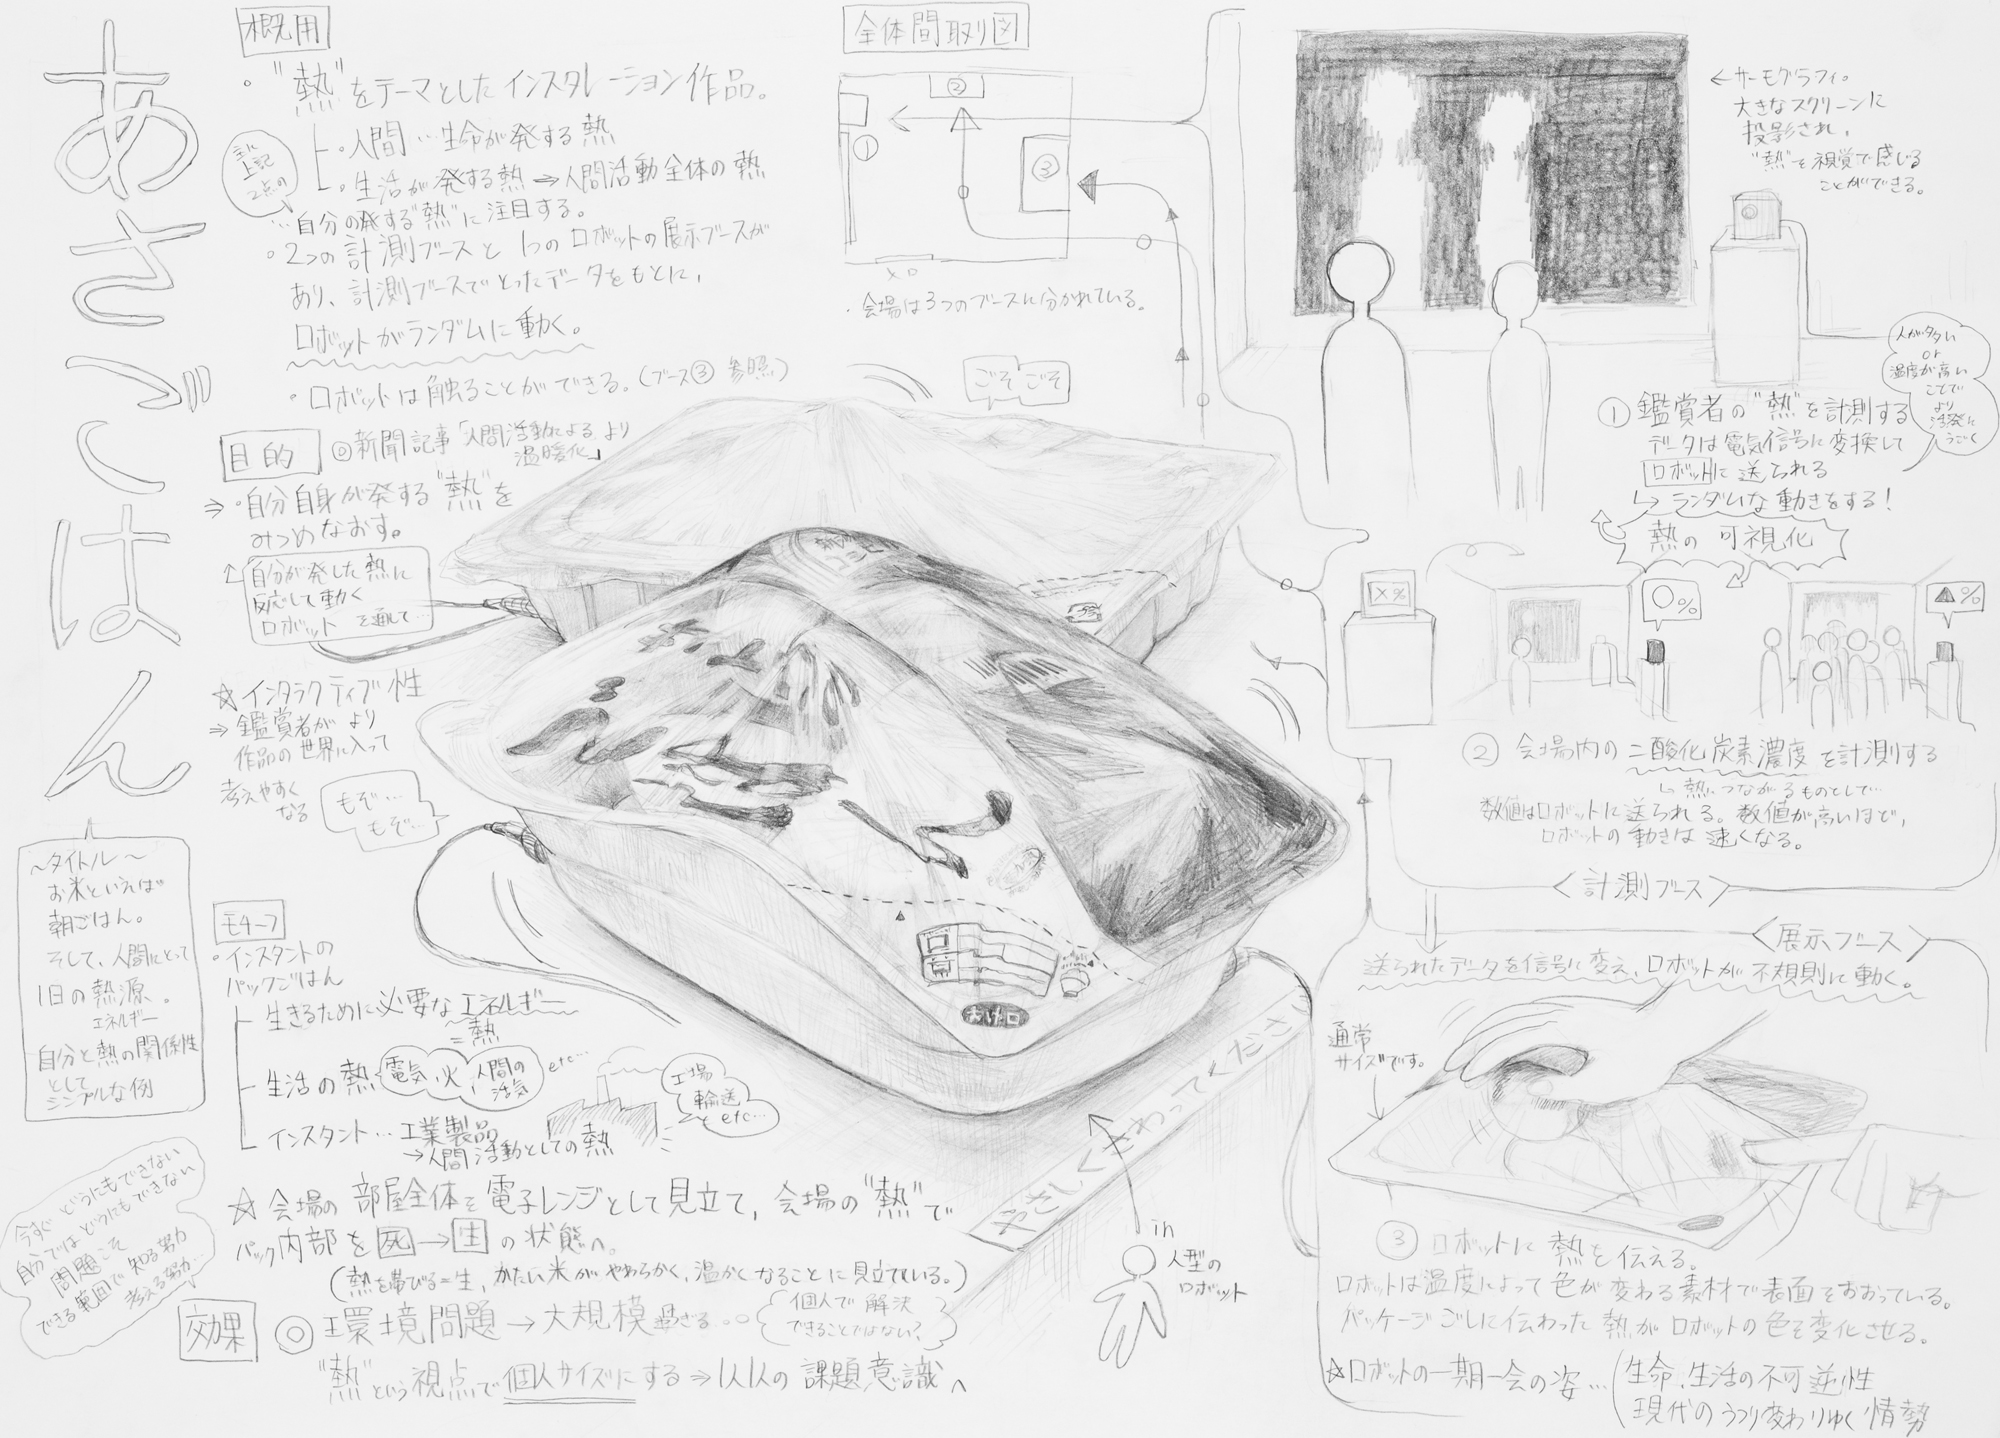 あさごはん
概用
・"熱"をテーマとしたインスタレーション作品。
・人間…生命が発する熱
・生活が発する熱→人間活動全体の熱
主に
上記
2点の
…自分の発する"熱"に注目する。
・2つの計測ブースと1つのロボットの展示ブースが
あり、計測ブースでとったデータをもとに、
ロボットがランダムに動く。
・ロボットは触ることができる。(ブース③参照)
目的
◎新聞記事「人間活動による
温暖化」より
⇒・自分自身が発する"熱"を
みつめなおす。
↑自分が発した熱に
反応して動く
ロボット を通して…
☆インタラクティブ性
⇒鑑賞者がより
作品の世界に入って
考えやすく
なる
もぞ…
もぞ…
〜タイトル〜
お米といえば
朝ごはん。
そして、人間にとって
1日の熱源。
エネルギー
自分と熱の関係性
として
シンプルな例
モチーフ
・インスタントの
パックごはん
生きるために必要なエネルギー
=熱
生活の熱
電気、火、人間の
活気
etc…
工場
輸送
etc…
インスタント…工業製品
→人間活動としての熱
☆会場の部屋全体を電子レンジとして見立て、会場の"熱"で
パック内部を死→生の状態へ。
(熱を帯びる=生、かたい米がやわらかく、温かくなることに見立てている。)
今すぐどうにもできない
自分ではどうにもできない
問題こそ
できる範囲で知る努力
考える努力…
効果
◎環境問題→大規模過ぎる
個人で解決
できることではない?
"熱"という視点で個人サイズにする⇒1人1人の課題意識へ
全体間取り図
①
②
③
入口
・会場は3つのブースに分かれている。
ごそごそ
あけ口
やさしくさわってください
in
人型の
ロボット
←サーモグラフィ。
大きなスクリーンに
投影され、
"熱"を視覚で感じる
ことができる。
人が多い
or
温度が高い
ことで
より
活発に
うごく
①鑑賞者の"熱"を計測する
データは電気信号に変換して
ロボットに送られる
↳ランダムな動きをする!
熱の可視化
X%
○%
▲%
②会場内の二酸化炭素濃度を計測する
↳熱につながるものとして…
数値はロボットに送られる。数値が高いほど、
ロボットの動きは速くなる。
〈計測ブース〉
〈展示ブース〉
送られたデータを信号に変え、ロボットが不規則に動く。
通常
サイズです。
③ロボットに熱を伝える。
ロボットは温度によって色が変わる素材で表面をおおっている。
パッケージごしに伝わった熱がロボットの色を変化させる。
☆ロボットの一期一会の姿…(生命、生活の不可逆性
現代のうつり変わりゆく情勢